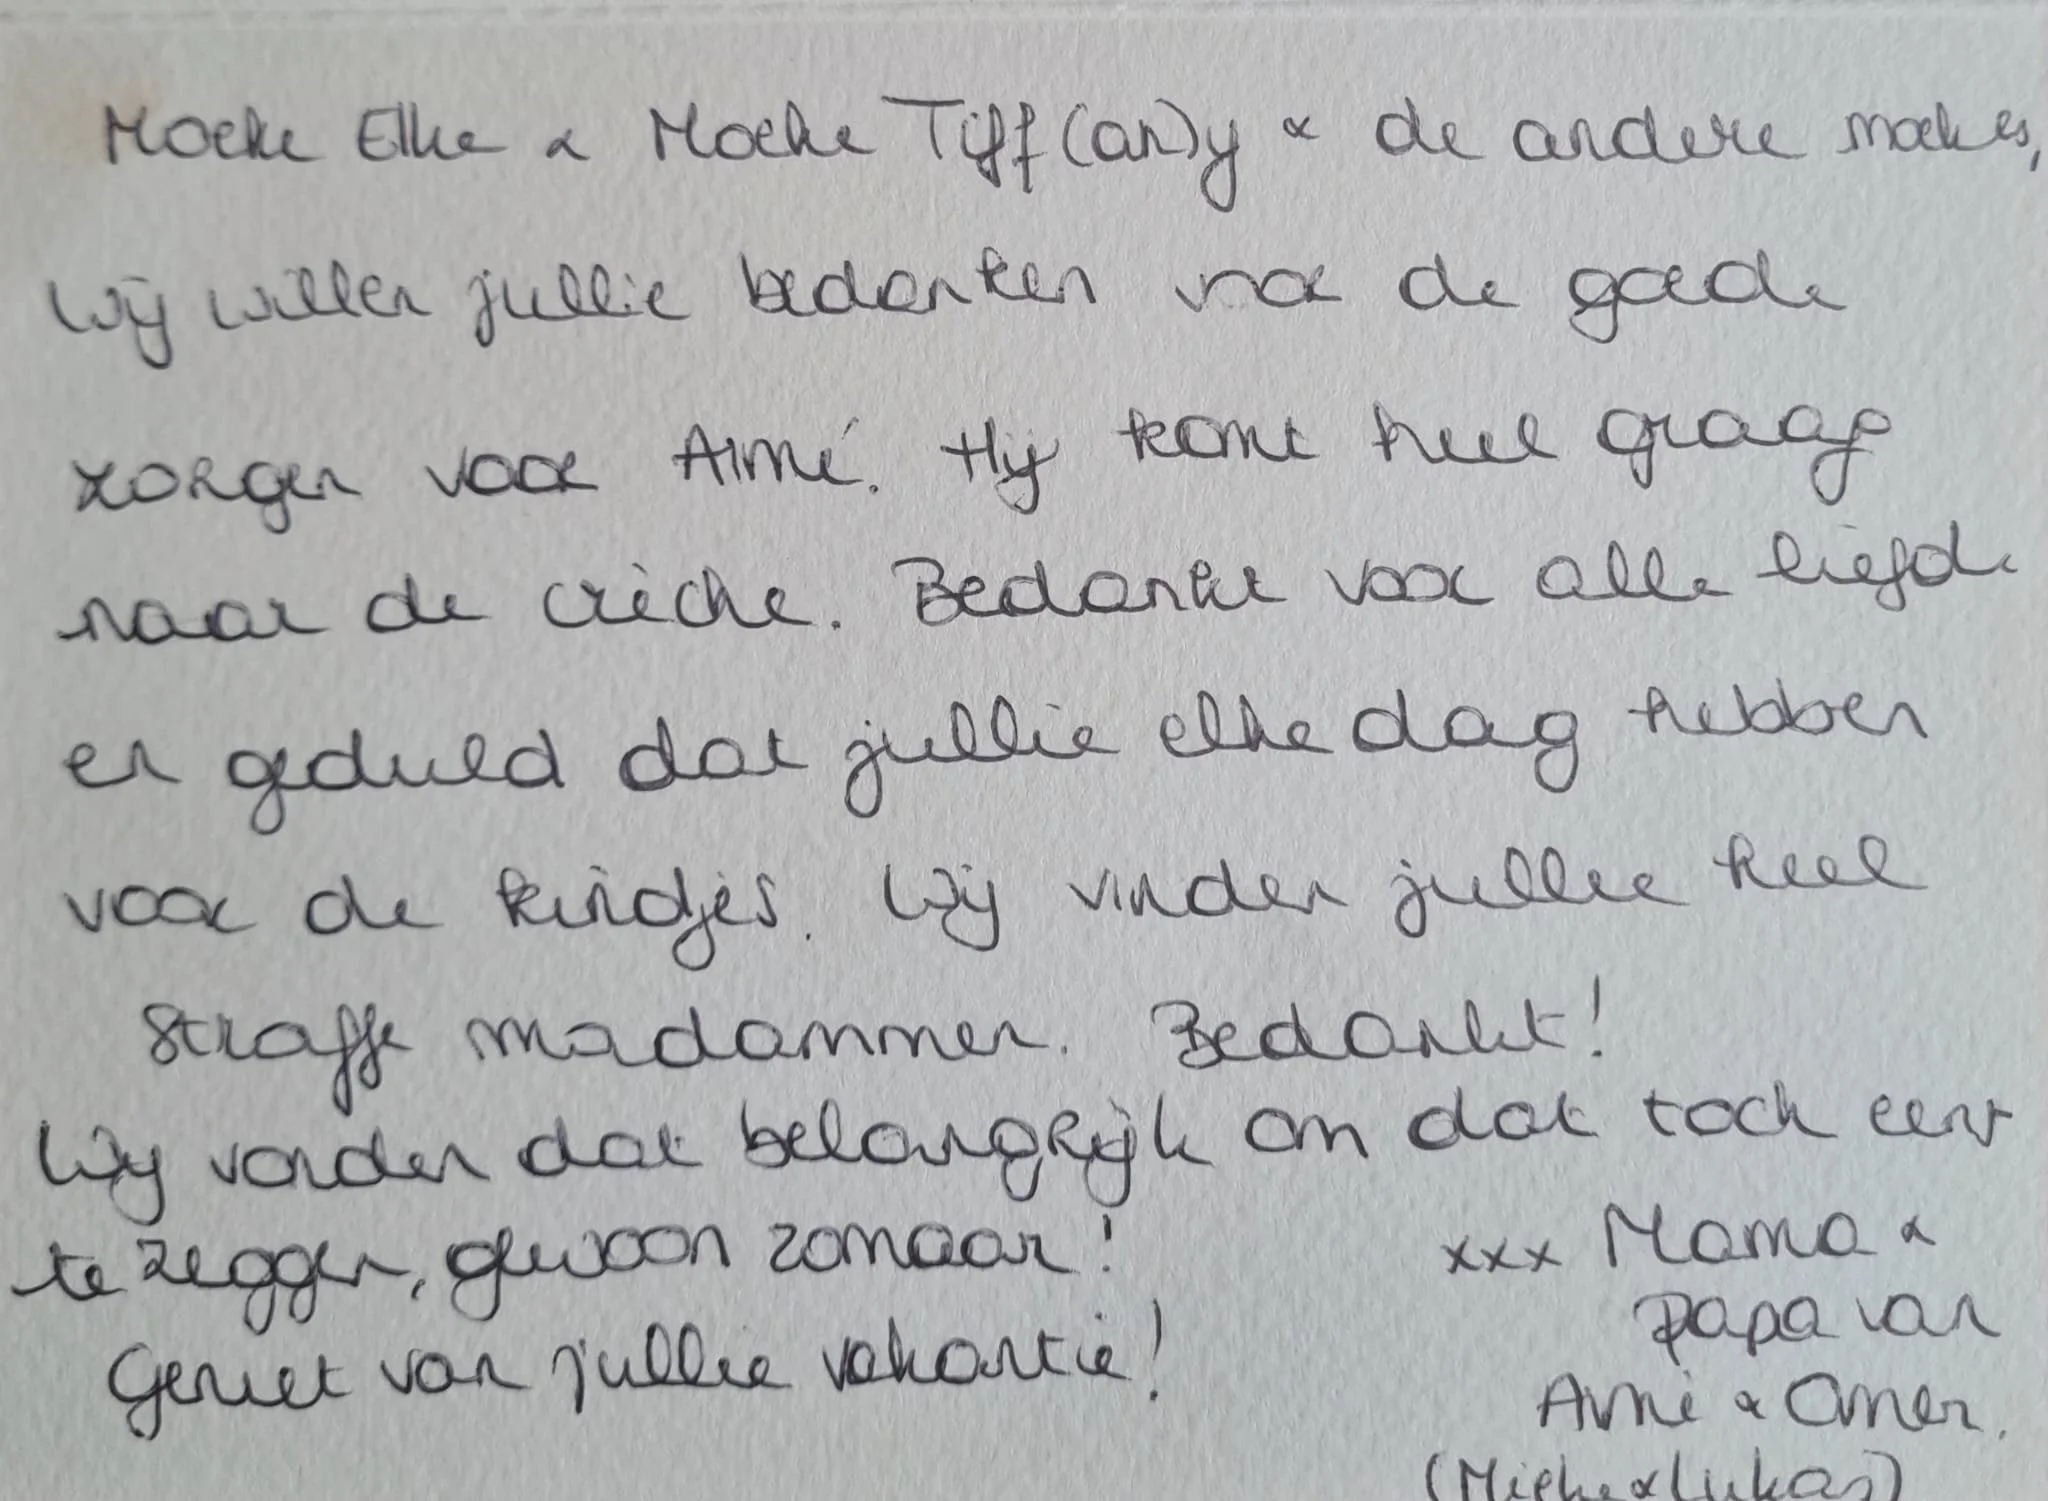 Moeke Elke & Moeke Tiff(an)y & de andere moekes,
Wij willen jullie bedanken voor de goede
zorgen voor Aimé. Hij komt heel graag
naar de crèche. Bedankt voor alle liefde
en geduld dat jullie elke dag hebben
voor de kindjes. Wij vinden jullie heel
straffe madammen. Bedankt!
Wij vonden dat belangrijk om dat toch eens
te zeggen, gewoon zomaar!
Geniet van jullie vakantie!
xxx Mama &
papa van
Aimé & Omer.
(Mieke & Lukas)